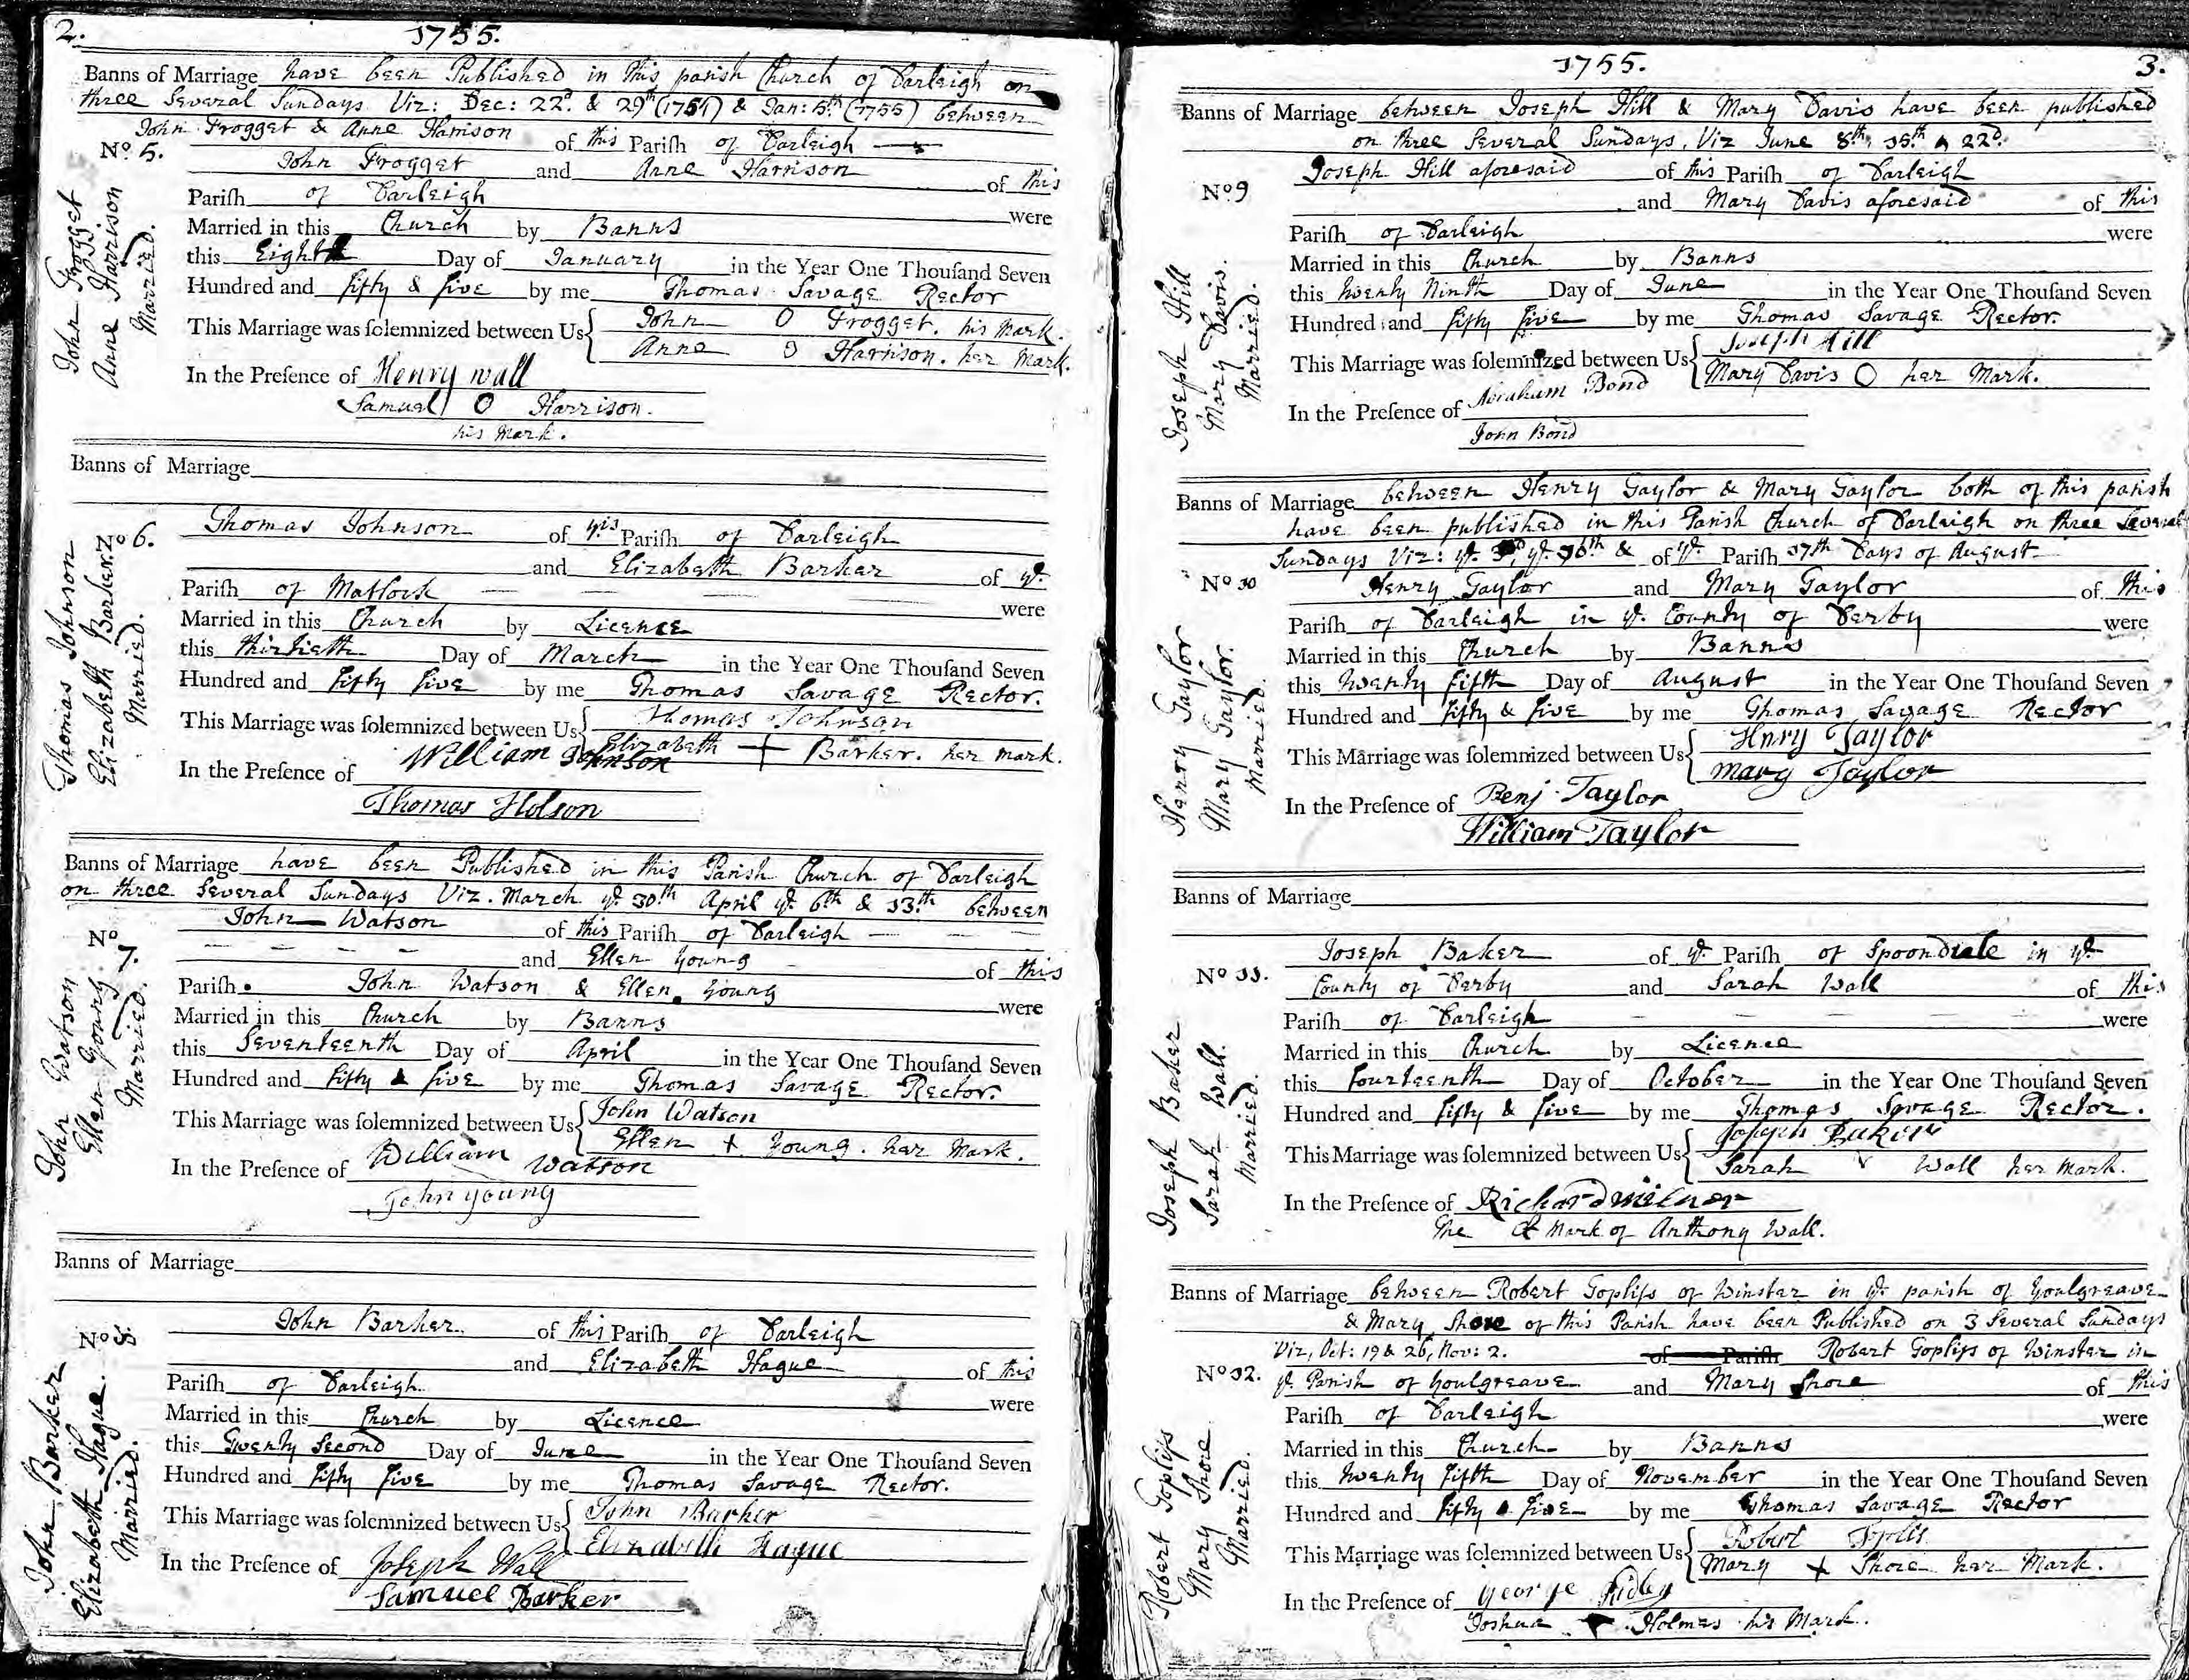 2.
1755.
Banns of Marriage have been Published in this parish Church of Darleigh on
three Several Sundays Viz: Dec: 22d. & 29th (1754) & Jan: 5th (1755) between
John Frogget & Anne Harrison of this Parish of Darleigh
No. 5.
John Frogget and Anne Harrison of this
Parish of Darleigh were
Married in this Church by Banns
this Eighth Day of January in the Year One Thousand Seven
Hundred and fifty & five by me Thomas Savage Rector
This Marriage was solemnized between Us John O Frogget. his Mark.
Anne O Harrison. her Mark.
In the Presence of Henry wall
Samuel O Harrison.
his Mark.
John Frogget
Anne Harrison
Married.
Banns of Marriage
No 6.
Thomas Johnson of yis Parish of Darleigh
and Elizabeth Barker of ye.
Parish of Matlock were
Married in this Church by Licence
this thirtieth Day of March in the Year One Thousand Seven
Hundred and fifty five by me Thomas Savage Rector.
This Marriage was solemnized between Us Thomas Johnson
Elizabeth + Barker. her mark.
In the Presence of William Johnson
Thomas Holson
Thomas Johnson
Elizabeth Barker
Married.
Banns of Marriage have been Published in this Parish Church of Darleigh
on three Several Sundays Viz. March ye. 30th April ye. 6th & 13th between
John Watson of this Parish of Darleigh
No 7.
and Ellen Young of this
Parish John Watson & Ellen Young were
Married in this Church by Banns
this Seventeenth Day of April in the Year One Thousand Seven
Hundred and fifty & five by me Thomas Savage Rector.
This Marriage was solemnized between Us John Watson
Ellen + Young. her Mark.
In the Presence of William Watson
John young
John Watson
Ellen Young.
Married.
Banns of Marriage
No 8.
John Barker of this Parish of Darleigh
and Elizabeth Hague of this
Parish of Darleigh were
Married in this Church by Licence
this Twenty Second Day of June in the Year One Thousand Seven
Hundred and fifty five by me Thomas Savage Rector.
This Marriage was solemnized between Us John Barker
Elizabeth Hague
In the Presence of Joseph Wall
Samuel Barker
John Barker
Elizabeth Hague.
Married.
1755.
3.
Banns of Marriage between Joseph Hill & Mary Davis have been published
on three Several Sundays, Viz June 8th, 15th & 22d.
No. 9
Joseph Hill aforesaid of this Parish of Darleigh
and Mary Davis aforesaid of this
Parish of Darleigh were
Married in this Church by Banns
this twenty Ninth Day of June in the Year One Thousand Seven
Hundred and fifty five by me Thomas Savage Rector.
This Marriage was solemnized between Us Joseph Hill
Mary Davis O her Mark.
In the Presence of Abraham Bond
John Bond
Joseph Hill
Mary Davis.
Married.
Banns of Marriage between Henry Taylor & Mary Taylor both of this parish
have been published in this Parish Church of Darleigh on three Several
Sundays Viz: ye. 3d, ye. 10th & of ye. Parish 17th Days of August.
No 10
Henry Taylor and Mary Taylor of this
Parish of Darleigh in ye. County of Derby were
Married in this Church by Banns
this twenty fifth Day of August in the Year One Thousand Seven
Hundred and fifty & five by me Thomas Savage Rector
This Marriage was solemnized between Us Henry Taylor
Mary Taylor
In the Presence of Benj. Taylor
William Taylor
Henry Taylor
Mary Taylor.
Married.
Banns of Marriage
No 11.
Joseph Baker of ye. Parish of Spoondale in ye.
County of Derby and Sarah Wall of this
Parish of Darleigh were
Married in this Church by Licence
this fourteenth Day of October in the Year One Thousand Seven
Hundred and fifty & five by me Thomas Savage Rector.
This Marriage was solemnized between Us Joseph Baker
Sarah V Wall her Mark.
In the Presence of Richard Milner
The Mark of Anthony Wall.
Joseph Baker
Sarah Wall.
Married.
Banns of Marriage between Robert Gopliss of Winster in ye. parish of Youlgreave
& Mary Shore of this Parish have been Published on 3 Several Sundays
Viz, Oct: 19 & 26, Nov: 2. of Parish Robert Gopliss of Winster in
No 12.
ye. Parish of Youlgreave and Mary Shore of this
Parish of Darleigh were
Married in this Church by Banns
this twenty fifth Day of November in the Year One Thousand Seven
Hundred and fifty & five by me Thomas Savage Rector
This Marriage was solemnized between Us Robert
Mary + Shore her Mark.
In the Presence of George Ridley
Joshua Holmes his Mark.
Robert Gopliss
Mary Shore
Married.